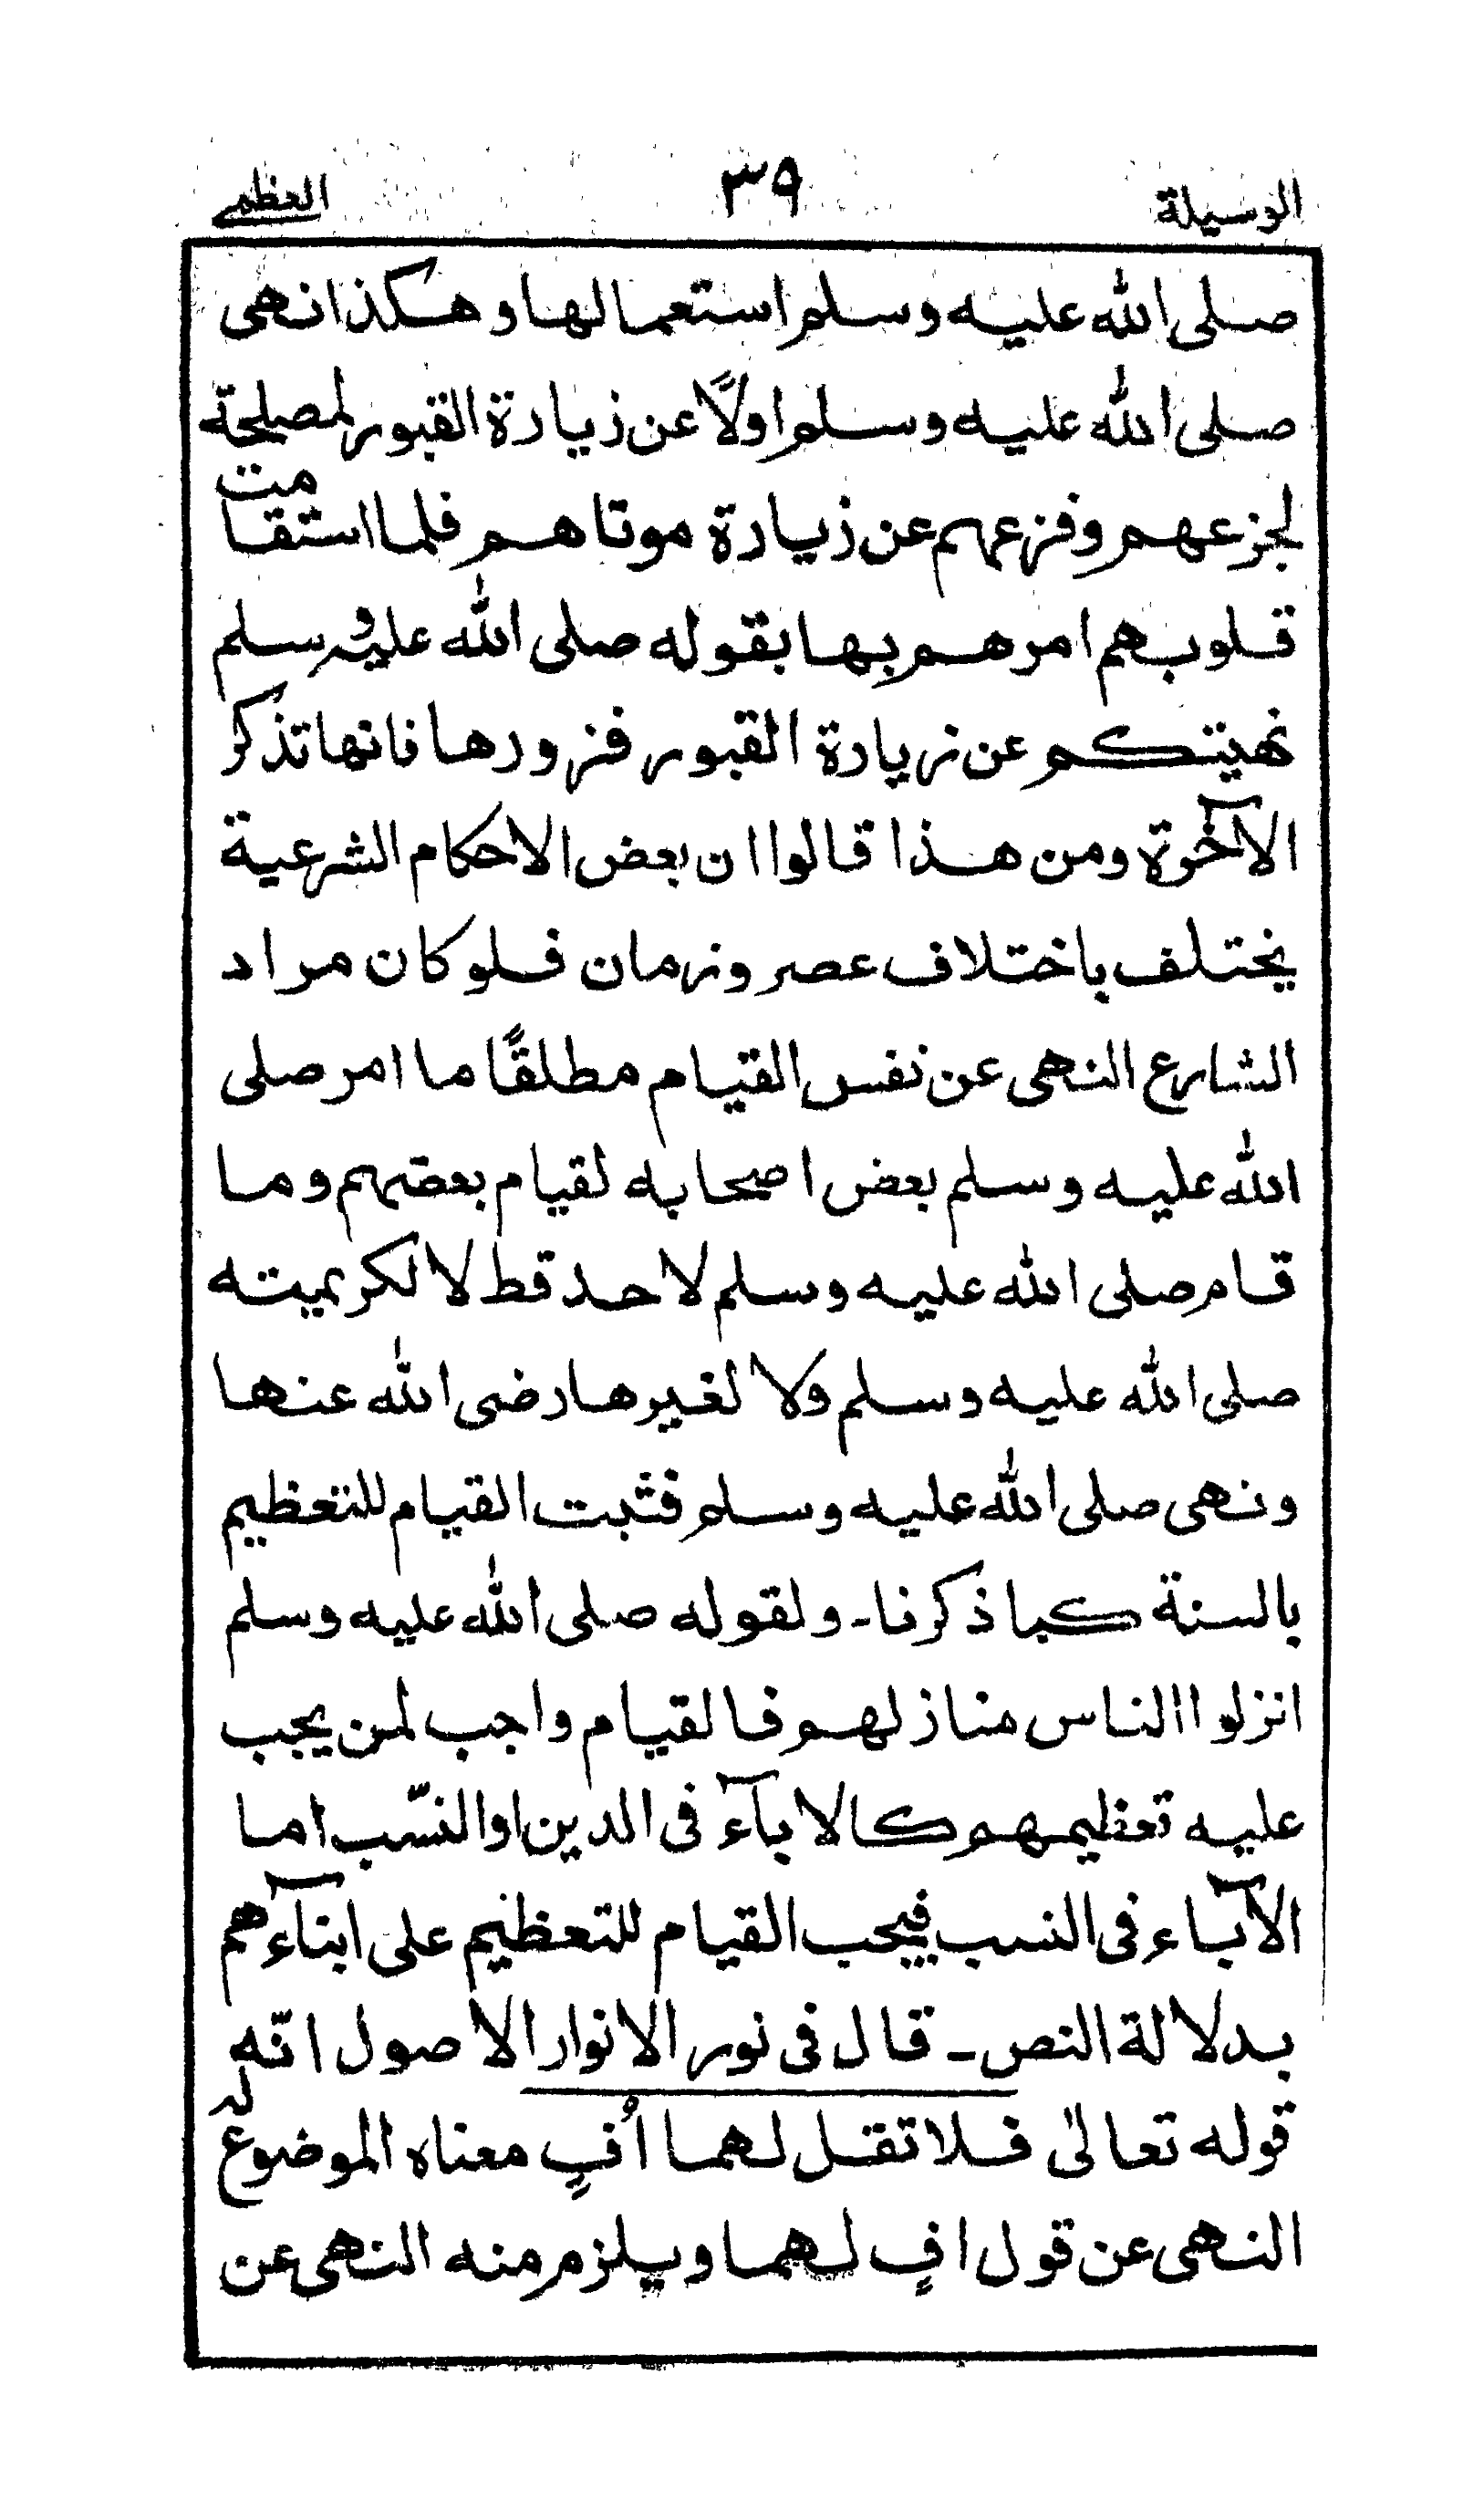 الوسيلة ٣٩ العظمى
صلى الله عليه وسلم استعمالها وهكذا نهى
صلى الله عليه وسلم اولًا عن زيارة القبور لمصلحة
لجزعهم وفزعهم عن زيارة موتاهم فلما استقامت
قلوبهم امرهم بها بقوله صلى الله عليه وسلم
نهيتكم عن زيارة القبور فزورها فانها تذكر
الآخرة ومن هذا قالوا ان بعض الاحكام الشرعية
يختلف باختلاف عصر وزمان فلو كان مراد
الشارع النهى عن نفس القيام مطلقًا ما امر صلى
الله عليه وسلم بعض اصحابه لقيام بعضهم وما
قام صلى الله عليه وسلم لاحد قط لا لكريميته
صلى الله عليه وسلم ولا لغيرها رضى الله عنها
ونهى صلى الله عليه وسلم فثبت القيام للتعظيم
بالسنة كما ذكرنا۔ ولقوله صلى الله عليه وسلم
انزلوا الناس منازلهم فالقيام واجب لمن يجب
عليه تعظيمهم كالابآء فى الدين او النسّب اما
الآباء فى النسب فيجب القيام للتعظيم على ابنآءهم
بدلالة النص۔ قال فى نور الانوار الاصول انّه
قوله تعالىٰ فلا تقل لهما اُفٍ معناه الموضوع له
النهى عن قول افٍ لهما ويلزم منه النهى عن